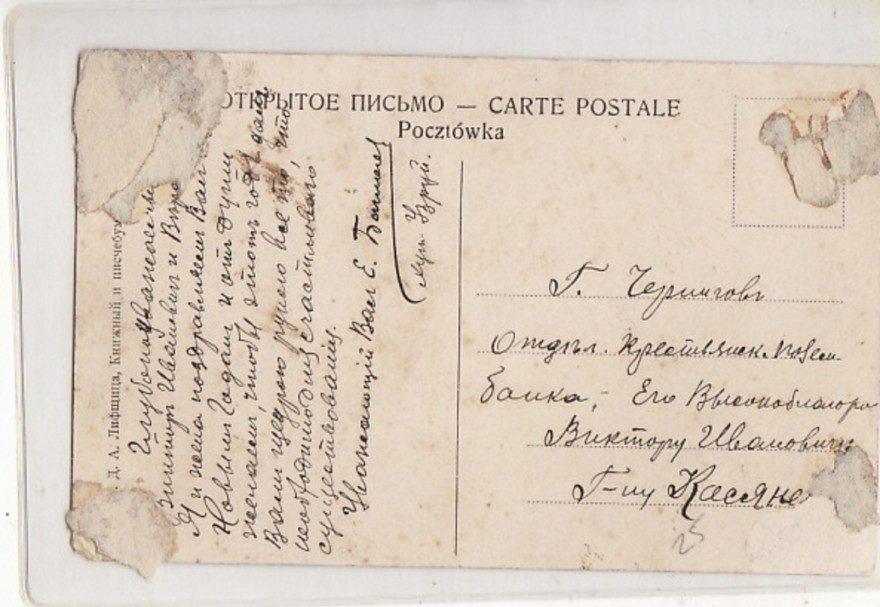 ОТКРЫТОЕ ПИСЬМО — CARTE POSTALE
Pocztówka
Д. А. Лифшица, Книжный и писчебу
Глубокоуважаемы
Виктор Иванович и
Я и жена поздравляем Вас с
Новым Годом и от души
желаем, чтобы этот год дал
Вам щедрою рукою все то, что
необходимо для счастливого
существования.
Уважающий Вас Е.
Г. Черниговъ
Отдѣл. Крестьянск. Позем.
банка, Его Высокоблагоро
Виктору Ивановичу
Г-ну Касяне